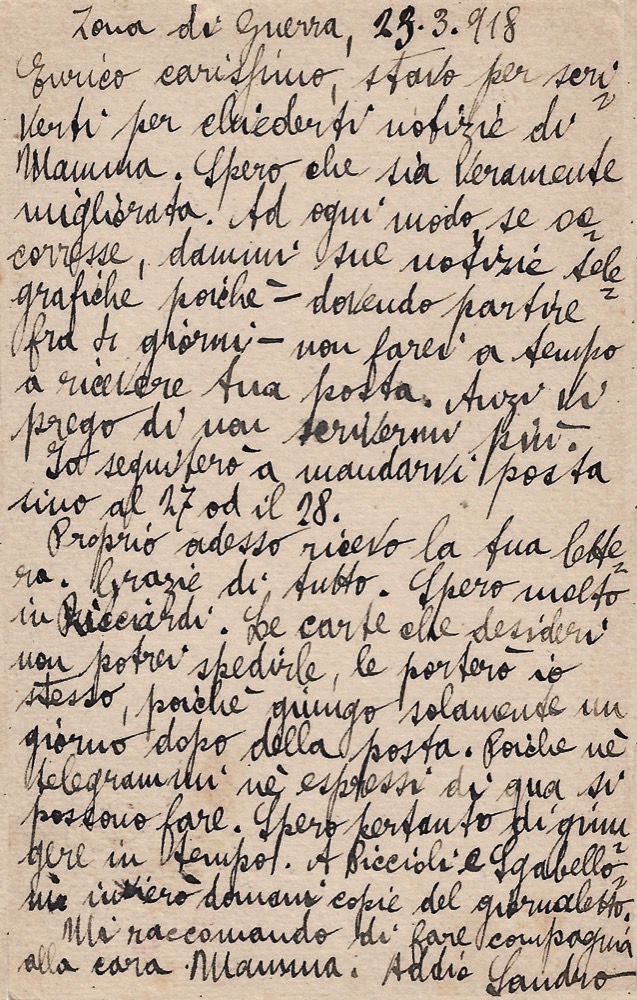 Zona di Guerra, 23.3.918
Enrico carissimo, stavo per scri=
verti per chiederti notizie di
Mamma. Spero che sia veramente
migliorata. Ad ogni modo, se oc=
corresse, dammi sue notizie tele=
grafiche poichè – dovendo partire
fra giorni – non farei a tempo
a ricevere tua posta. Anzi vi
prego di non scrivermi più.
Io seguiterò a mandarvi posta
sino al 27 od il 28.
Proprio adesso ricevo la tua lette=
ra. Grazie di tutto. Spero molto
in Ricciardi. Le carte che desideri
non potrei spedirle, le porterò io
stesso, poichè giungo solamente un
giorno dopo della posta. Poichè nè
telegrammi nè espressi di qua si
possono fare. Spero pertanto di giun
gere in tempo. A Piccioli e Sgabello=
ni invierò domani copie del giornaletto.
Mi raccomando di fare compagnia
alla cara Mamma. Addio Sandro